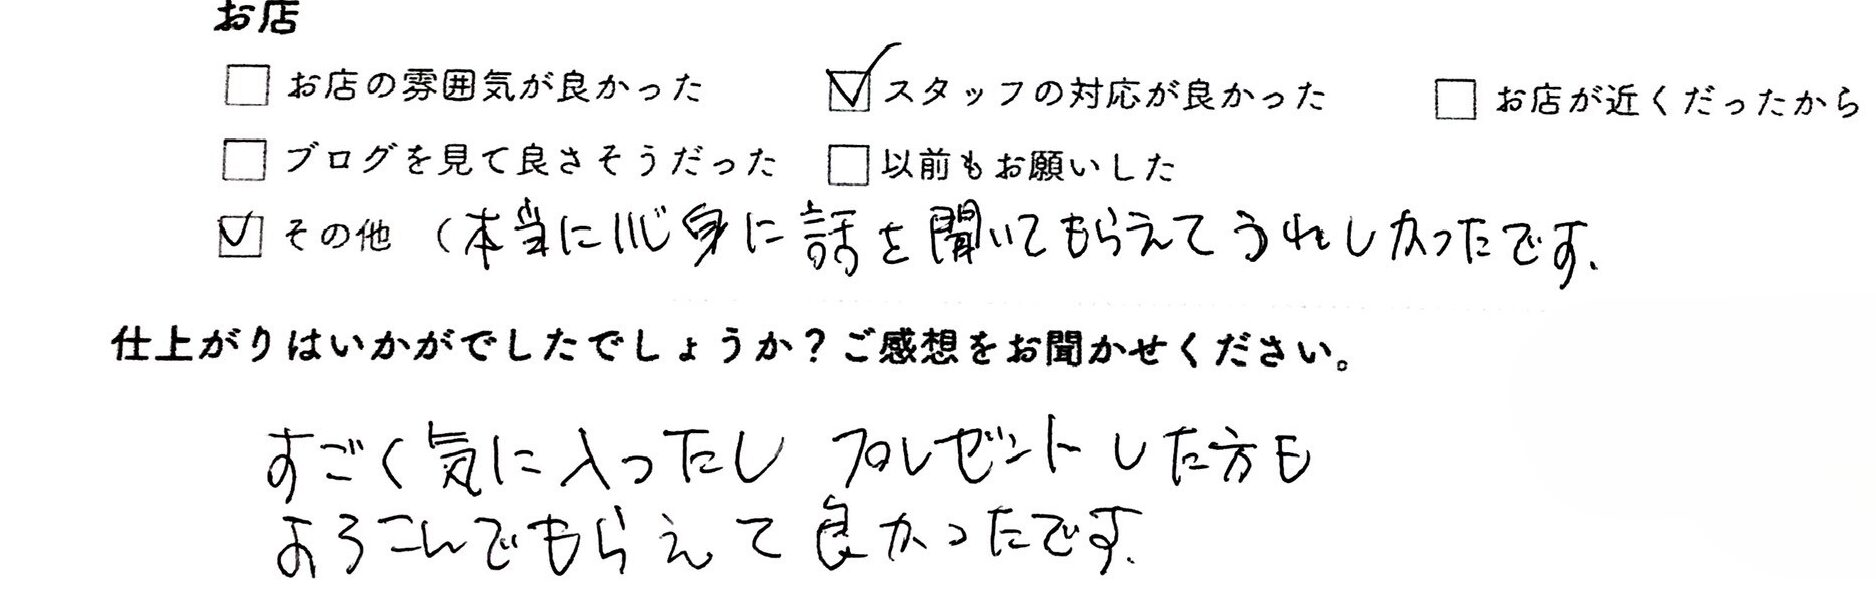 お店
□ お店の雰囲気が良かった ☑ スタッフの対応が良かった □ お店が近くだったから
□ ブログを見て良さそうだった □ 以前もお願いした
☑ その他 (本当に心身に話を聞いてもらえてうれしかったです.
仕上がりはいかがでしたでしょうか？ご感想をお聞かせください。
すごく気に入ったし プレゼントした方も
よろこんでもらえて良かったです.